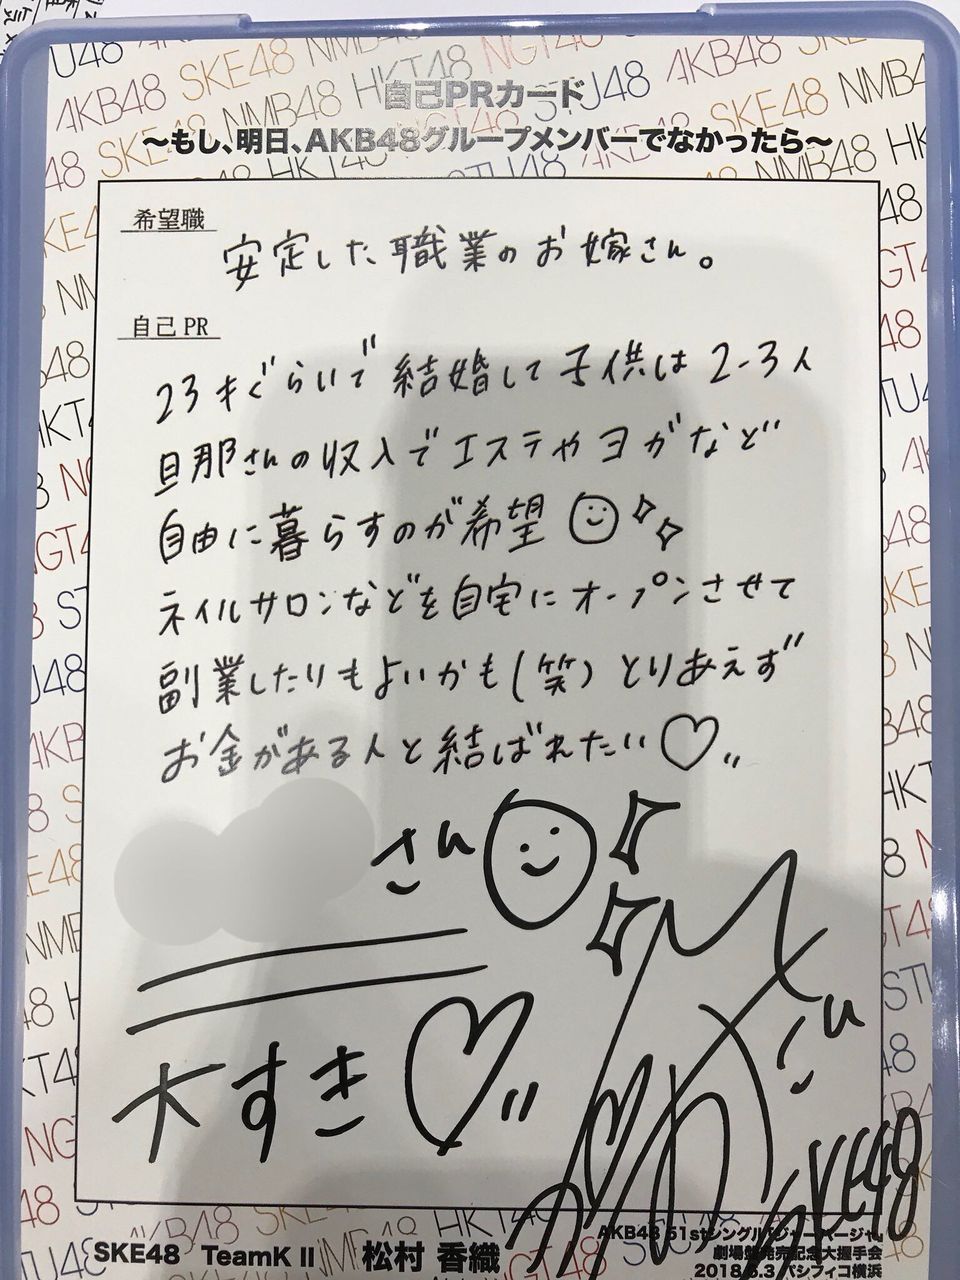 自己PRカード
～もし、明日、AKB48グループメンバーでなかったら～
希望職
安定した職業のお嫁さん。
自己PR
23才ぐらいで結婚して子供は2-3人
旦那さんの収入でエステやヨガなど
自由に暮らすのが希望
ネイルサロンなどを自宅にオープンさせて
副業したりもよいかも(笑)とりあえず
お金がある人と結ばれたい♡
さん
大すき♡
SKE48
SKE48 TeamK II 松村 香織
AKB48 51stシングル「ジャーバージャ」
劇場盤発売記念大握手会
2018.6.3 パシフィコ横浜